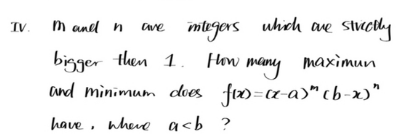 IV. m and n are integers which are strictly
bigger then 1. How many maximun
and minimum does f(x)=(x-a)^m (b-x)^n
have, where a<b ?